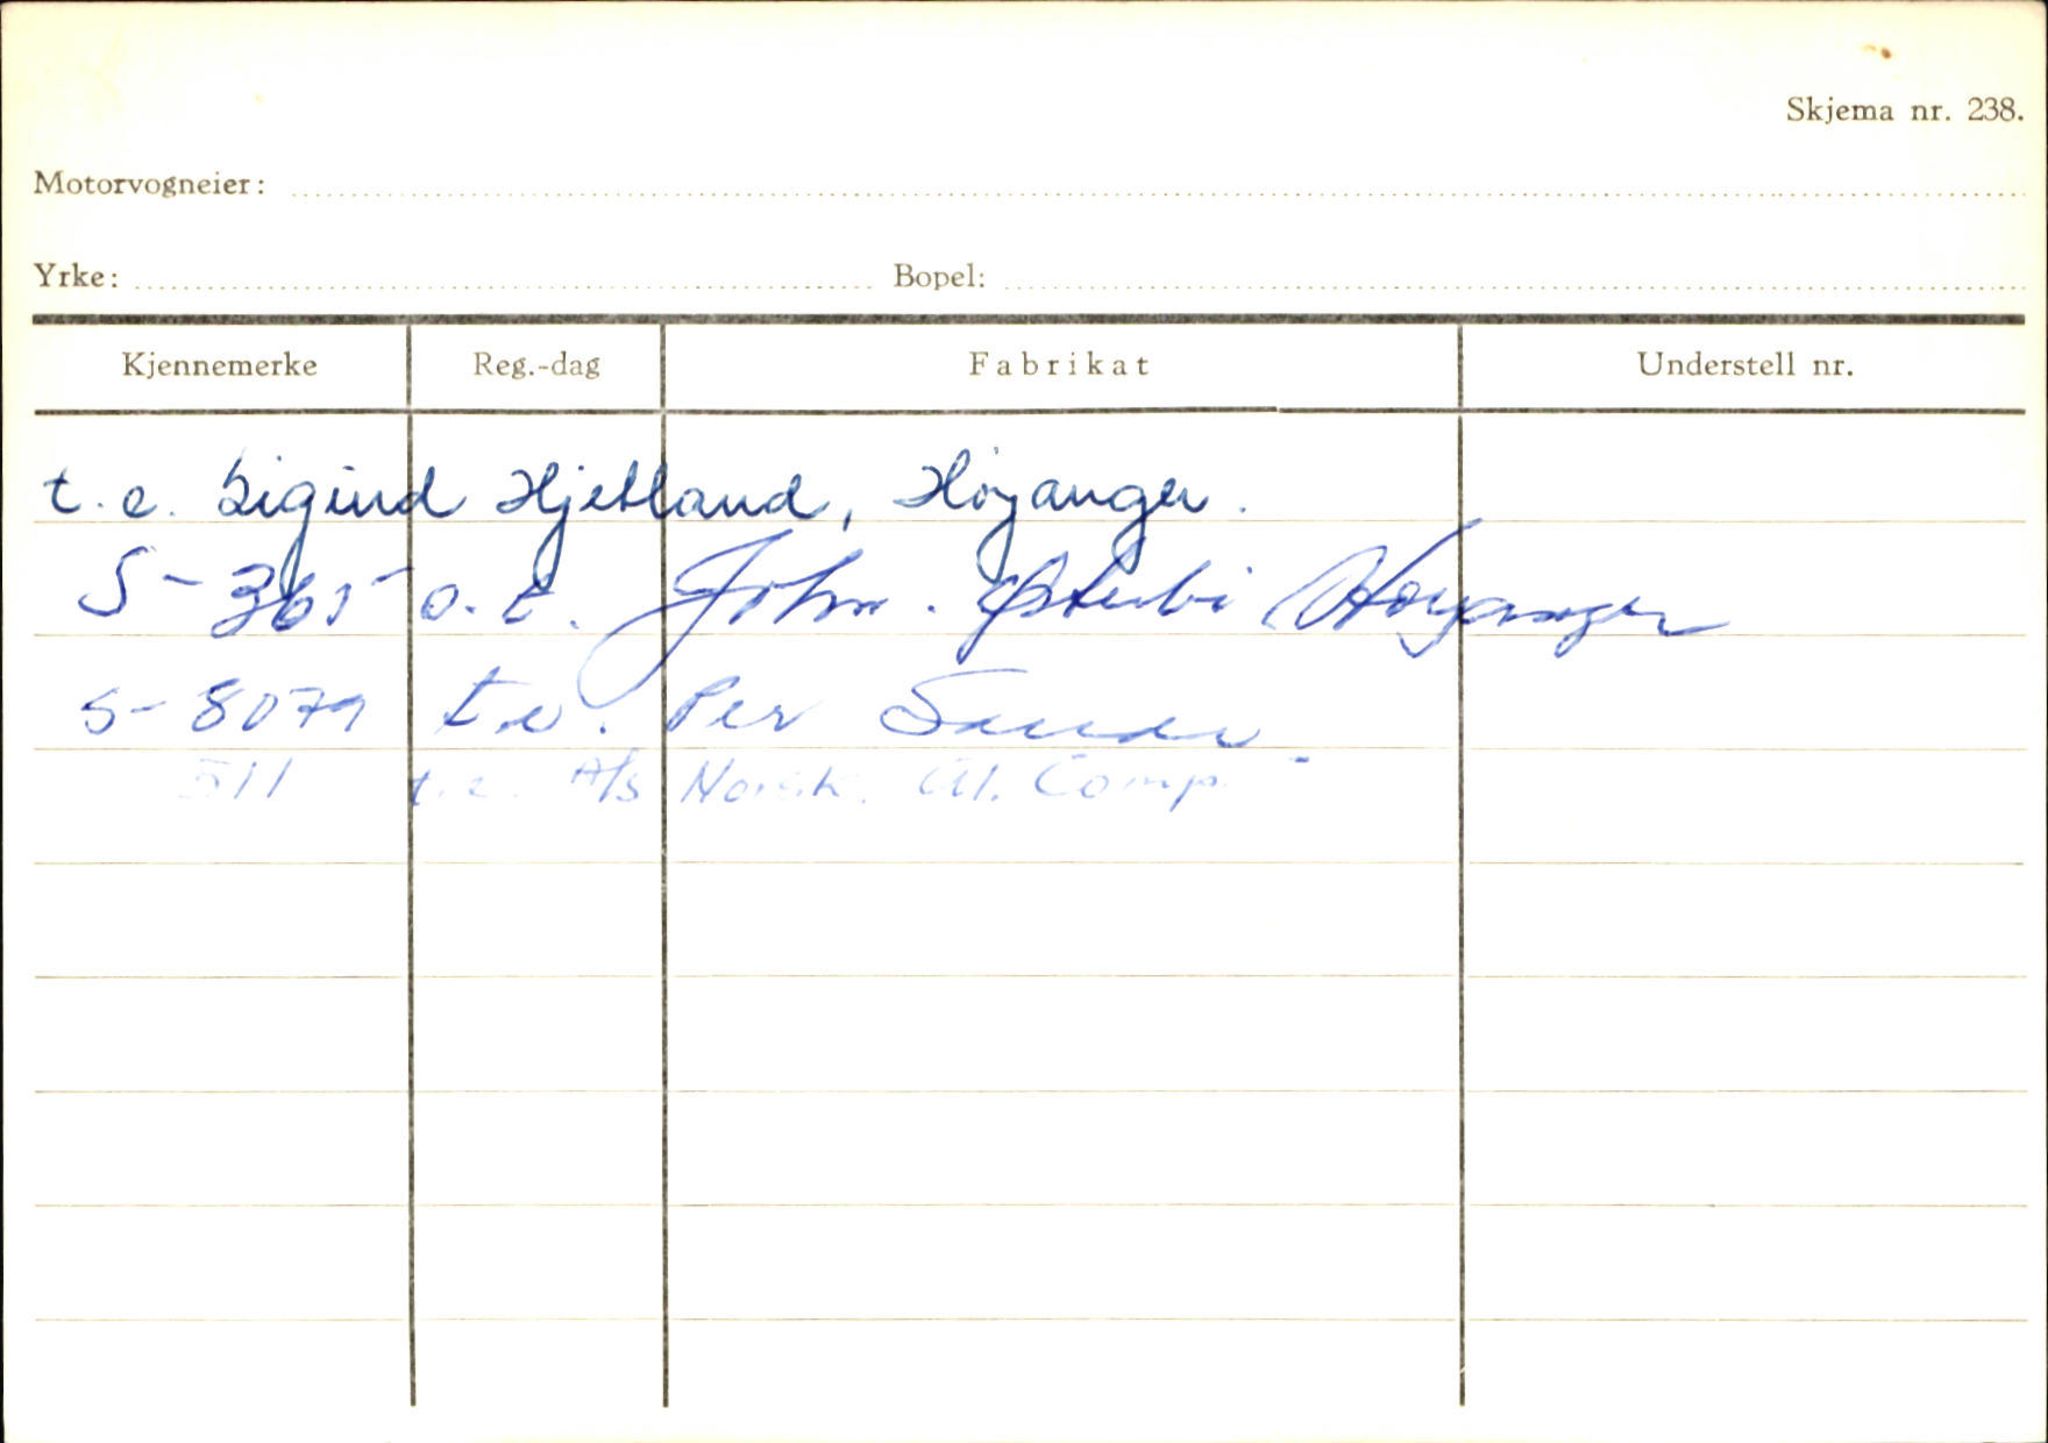 Skjema nr. 238.
Motorvogneier:
Yrke: Bopel:
Kjennemerke Reg.-dag Fabrikat Understell nr.
t.e. Sigurd Hjetland, Höyanger.
S-365 o.t. John. Østerbø Høyanger
S-8079 t.e. Per
511 t.e. A/S Norsk. Al. Comp.